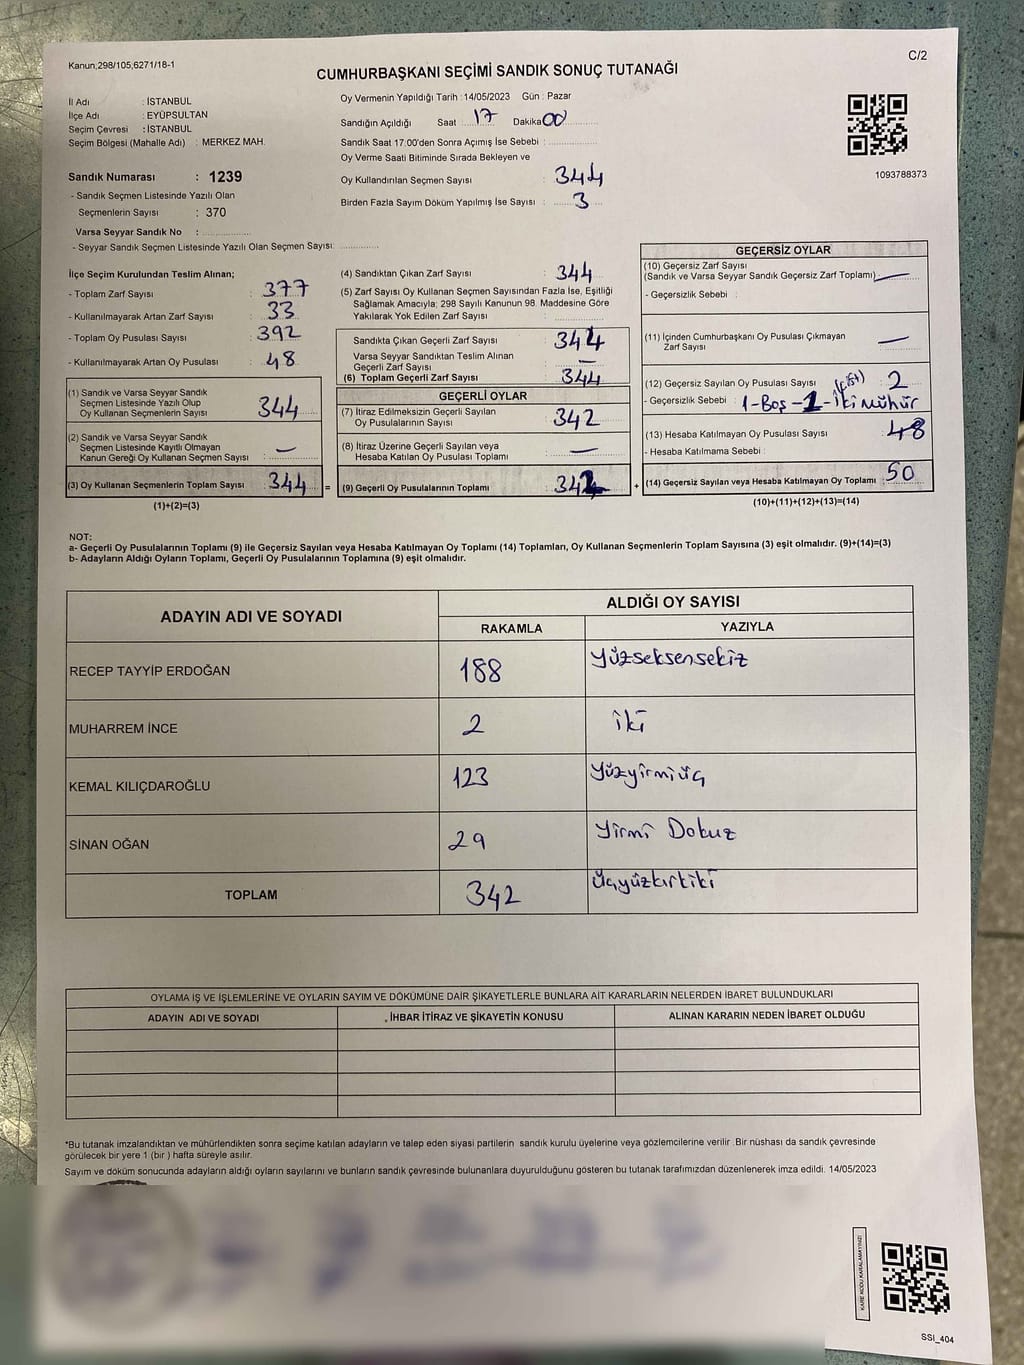 Kanun;298/105,6271/18-1
C/2
CUMHURBAŞKANI SEÇİMİ SANDIK SONUÇ TUTANAĞI
İl Adı : İSTANBUL
İlçe Adı : EYÜPSULTAN
Seçim Çevresi : İSTANBUL
Seçim Bölgesi (Mahalle Adı) : MERKEZ MAH.
Sandık Numarası : 1239
- Sandık Seçmen Listesinde Yazılı Olan
Seçmenlerin Sayısı : 370
Varsa Seyyar Sandık No :
- Seyyar Sandık Seçmen Listesinde Yazılı Olan Seçmen Sayısı:
Oy Vermenin Yapıldığı Tarih : 14/05/2023 Gün : Pazar
Sandığın Açıldığı Saat 17 Dakika 00
Sandık Saat 17:00'den Sonra Açımış İse Sebebi :
Oy Verme Saati Bitiminde Sırada Bekleyen ve
Oy Kullandırılan Seçmen Sayısı : 344
Birden Fazla Sayım Döküm Yapılmış İse Sayısı : 3
1093788373
İlçe Seçim Kurulundan Teslim Alınan;
- Toplam Zarf Sayısı : 377
- Kullanılmayarak Artan Zarf Sayısı : 33
- Toplam Oy Pusulası Sayısı : 392
- Kullanılmayarak Artan Oy Pusulası : 48
(1) Sandık ve Varsa Seyyar Sandık
Seçmen Listesinde Yazılı Olup
Oy Kullanan Seçmenlerin Sayısı : 344
(2) Sandık ve Varsa Seyyar Sandık
Seçmen Listesinde Kayıtlı Olmayan
Kanun Gereği Oy Kullanan Seçmen Sayısı : —
(3) Oy Kullanan Seçmenlerin Toplam Sayısı : 344 =
(1)+(2)=(3)
(4) Sandıktan Çıkan Zarf Sayısı : 344
(5) Zarf Sayısı Oy Kullanan Seçmen Sayısından Fazla İse, Eşitliği
Sağlamak Amacıyla; 298 Sayılı Kanunun 98. Maddesine Göre
Yakılarak Yok Edilen Zarf Sayısı :
Sandıkta Çıkan Geçerli Zarf Sayısı : 344
Varsa Seyyar Sandıktan Teslim Alınan
Geçerli Zarf Sayısı : —
(6) Toplam Geçerli Zarf Sayısı : 344
GEÇERLİ OYLAR
(7) İtiraz Edilmeksizin Geçerli Sayılan
Oy Pusulalarının Sayısı : 342
(8) İtiraz Üzerine Geçerli Sayılan veya
Hesaba Katılan Oy Pusulası Toplamı : —
(9) Geçerli Oy Pusulalarının Toplamı : 342 +
GEÇERSİZ OYLAR
(10) Geçersiz Zarf Sayısı
(Sandık ve Varsa Seyyar Sandık Geçersiz Zarf Toplamı) —
- Geçersizlik Sebebi :
(11) İçinden Cumhurbaşkanı Oy Pusulası Çıkmayan
Zarf Sayısı —
(12) Geçersiz Sayılan Oy Pusulası Sayısı : 2
- Geçersizlik Sebebi : 1-Boş -1- İki Mühür
(13) Hesaba Katılmayan Oy Pusulası Sayısı : 48
- Hesaba Katılmama Sebebi :
(14) Geçersiz Sayılan veya Hesaba Katılmayan Oy Toplamı : 50
(10)+(11)+(12)+(13)=(14)
NOT:
a- Geçerli Oy Pusulalarının Toplamı (9) ile Geçersiz Sayılan veya Hesaba Katılmayan Oy Toplamı (14) Toplamları, Oy Kullanan Seçmenlerin Toplam Sayısına (3) eşit olmalıdır. (9)+(14)=(3)
b- Adayların Aldığı Oyların Toplamı, Geçerli Oy Pusulalarının Toplamına (9) eşit olmalıdır.
ADAYIN ADI VE SOYADI
ALDIĞI OY SAYISI
RAKAMLA YAZIYLA
RECEP TAYYİP ERDOĞAN 188 Yüzseksensekiz
MUHARREM İNCE 2 iki
KEMAL KILIÇDAROĞLU 123 Yüzyirmiüç
SİNAN OĞAN 29 Yirmi Dokuz
TOPLAM 342 Üçyüzkırkiki
OYLAMA İŞ VE İŞLEMLERİNE VE OYLARIN SAYIM VE DÖKÜMÜNE DAİR ŞİKAYETLERLE BUNLARA AİT KARARLARIN NELERDEN İBARET BULUNDUKLARI
ADAYIN ADI VE SOYADI İHBAR İTİRAZ VE ŞİKAYETİN KONUSU ALINAN KARARIN NEDEN İBARET OLDUĞU
*Bu tutanak imzalandıktan ve mühürlendikten sonra seçime katılan adayların ve talep eden siyasi partilerin sandık kurulu üyelerine veya gözlemcilerine verilir .Bir nüshası da sandık çevresinde
görülecek bir yere 1 (bir ) hafta süreyle asılır.
Sayım ve döküm sonucunda adayların aldığı oyların sayılarını ve bunların sandık çevresinde bulunanlara duyurulduğunu gösteren bu tutanak tarafımızdan düzenlenerek imza edildi. 14/05/2023
KARE KODU KARALAMAYINIZ!
SSI_404